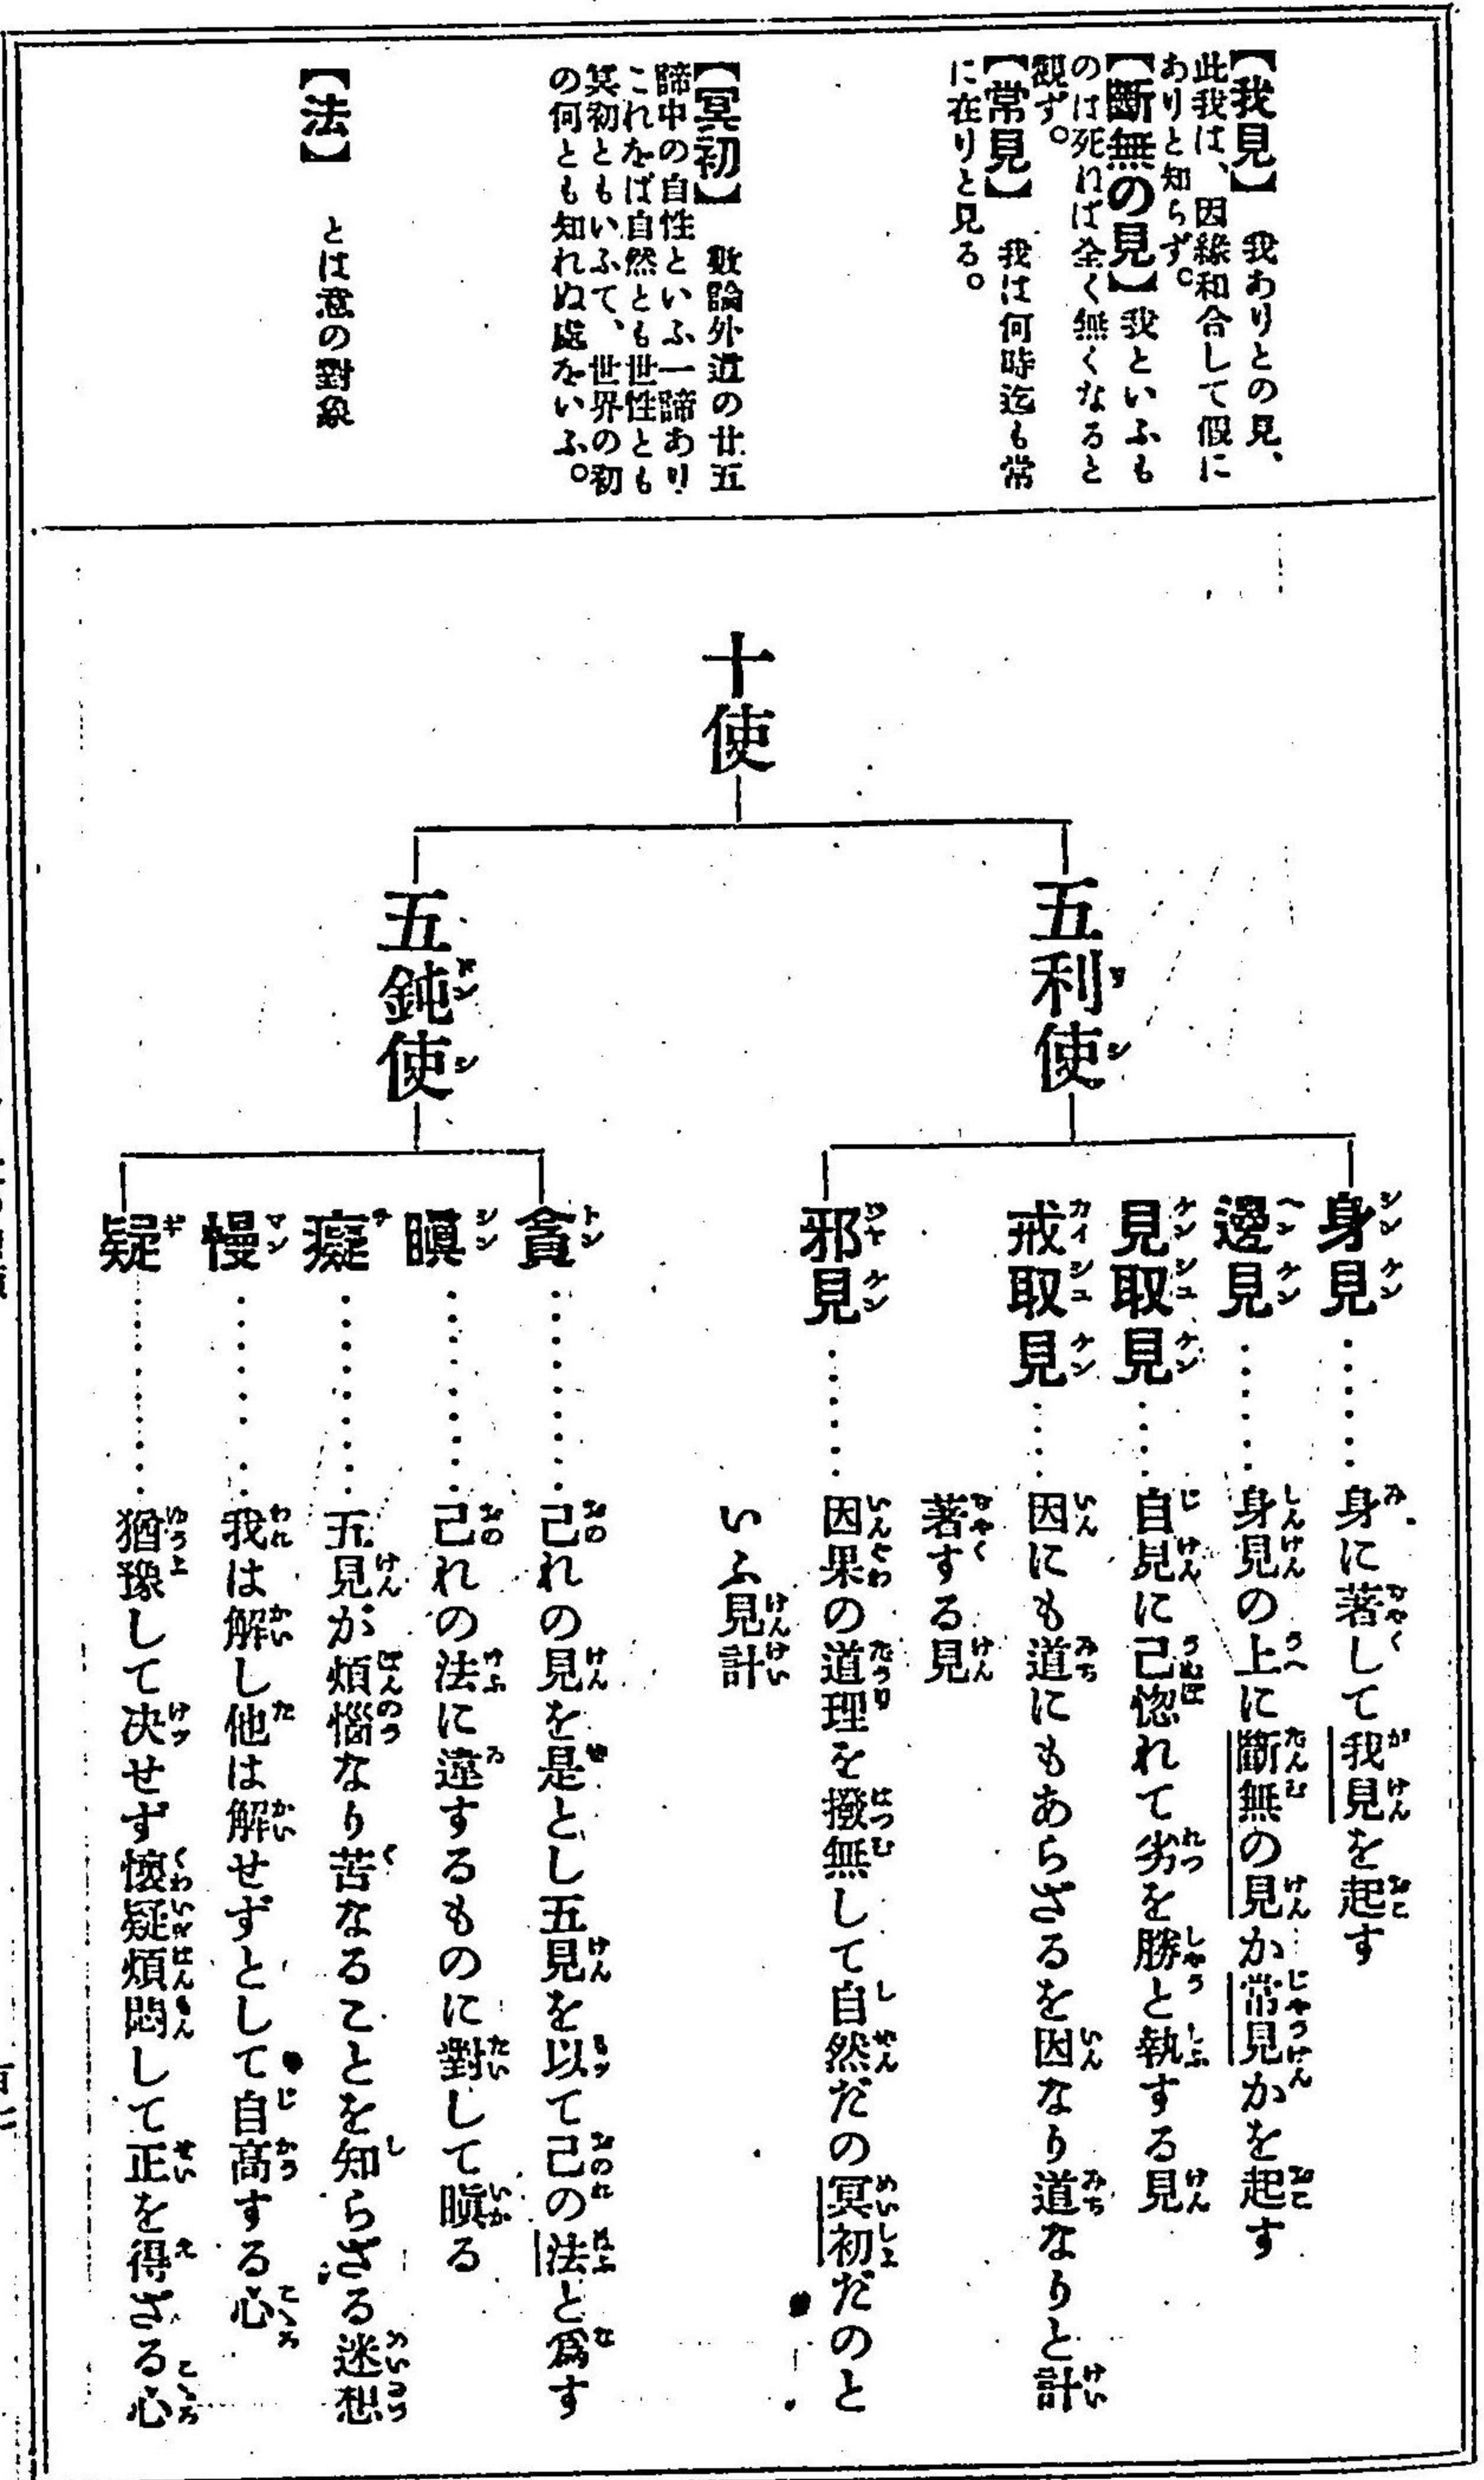 【我見】 我ありとの見、
此我は、因緣和合して假に
ありと知らず。
【斷無の見】我といふも
のは死ねば全く無くなると
觀ず。
【常見】 我は何時迄も常
に在りと見る。
【冥初】 數論外道の廿五
諦中の自性といふ一諦あり
これをば自然とも世性とも
冥初ともいふて、世界の初
の何とも知れぬ處をいふ。
【法】 とは意の對象
十使
五利使
身見……身に著して我見を起す
邊見……身見の上に斷無の見か常見かを起す
見取見……自見に己惚れて劣を勝と執する見
戒取見……因にも道にもあらざるを因なり道なりと計
著する見
邪見……因果の道理を撥無して自然だの冥初だのと
いふ見計
五鈍使
貪……己れの見を是とし五見を以て己の法と爲す
瞋……己れの法に違するものに對して瞋る
癡……五見が煩惱なり苦なることを知らざる迷想
慢……我は解し他は解せずとして自高する心
疑……猶豫して决せず懷疑煩悶して正を得ざる心